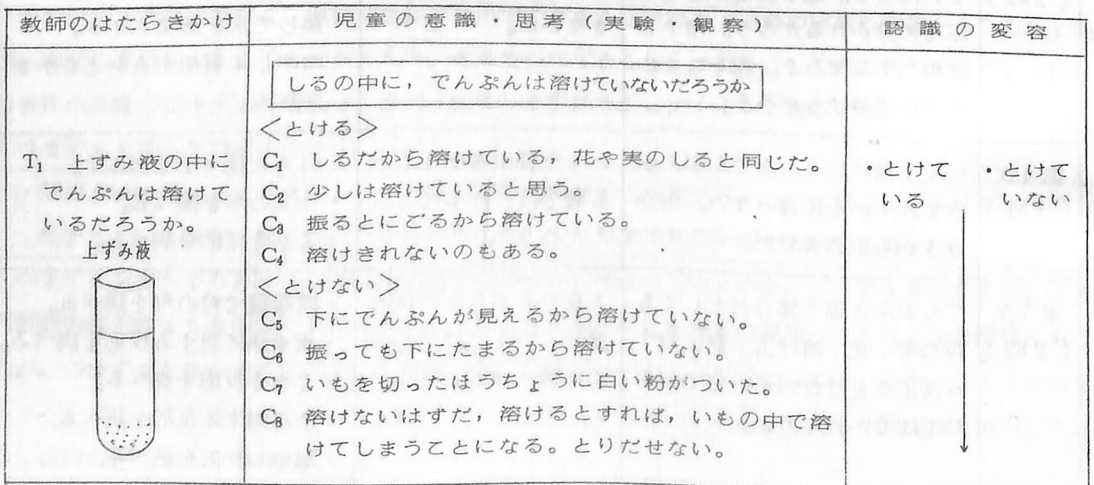 教師のはたらきかけ
児童の意識・思考・実験・観察
認識の変容
しるの中に，でんぷんは溶けていないだろうか
T₁ 上ずみ液の中に
でんぷんは溶けて
いるだろうか。
上ずみ液
＜とける＞
C₁ しるだから溶けている，花や実のしると同じだ。
C₂ 少しは溶けていると思う。
C₃ 振るとにごるから溶けている。
C₄ 溶けきれないのもある。
＜とけない＞
C₅ 下にでんぷんが見えるから溶けていない。
C₆ 振っても下にたまるから溶けていない。
C₇ いもを切ったほうちょうに白い粉がついた。
C₈ 溶けないはずだ，溶けるとすれば，いもの中で溶
けてしまうことになる。とりだせない。
・とけて
いる
・とけて
いない